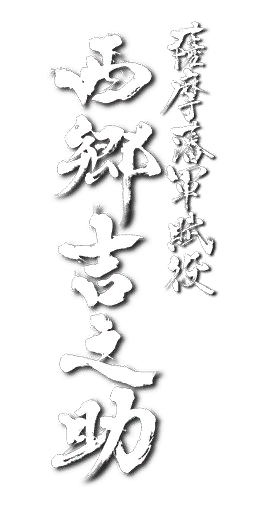 薩摩藩軍賦役
西郷吉之助